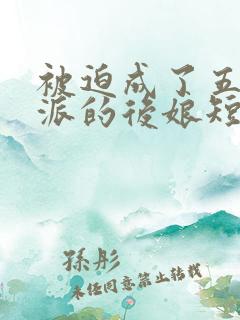 被迫成了五
派的後娘短
孫彤
未经同意禁止转载